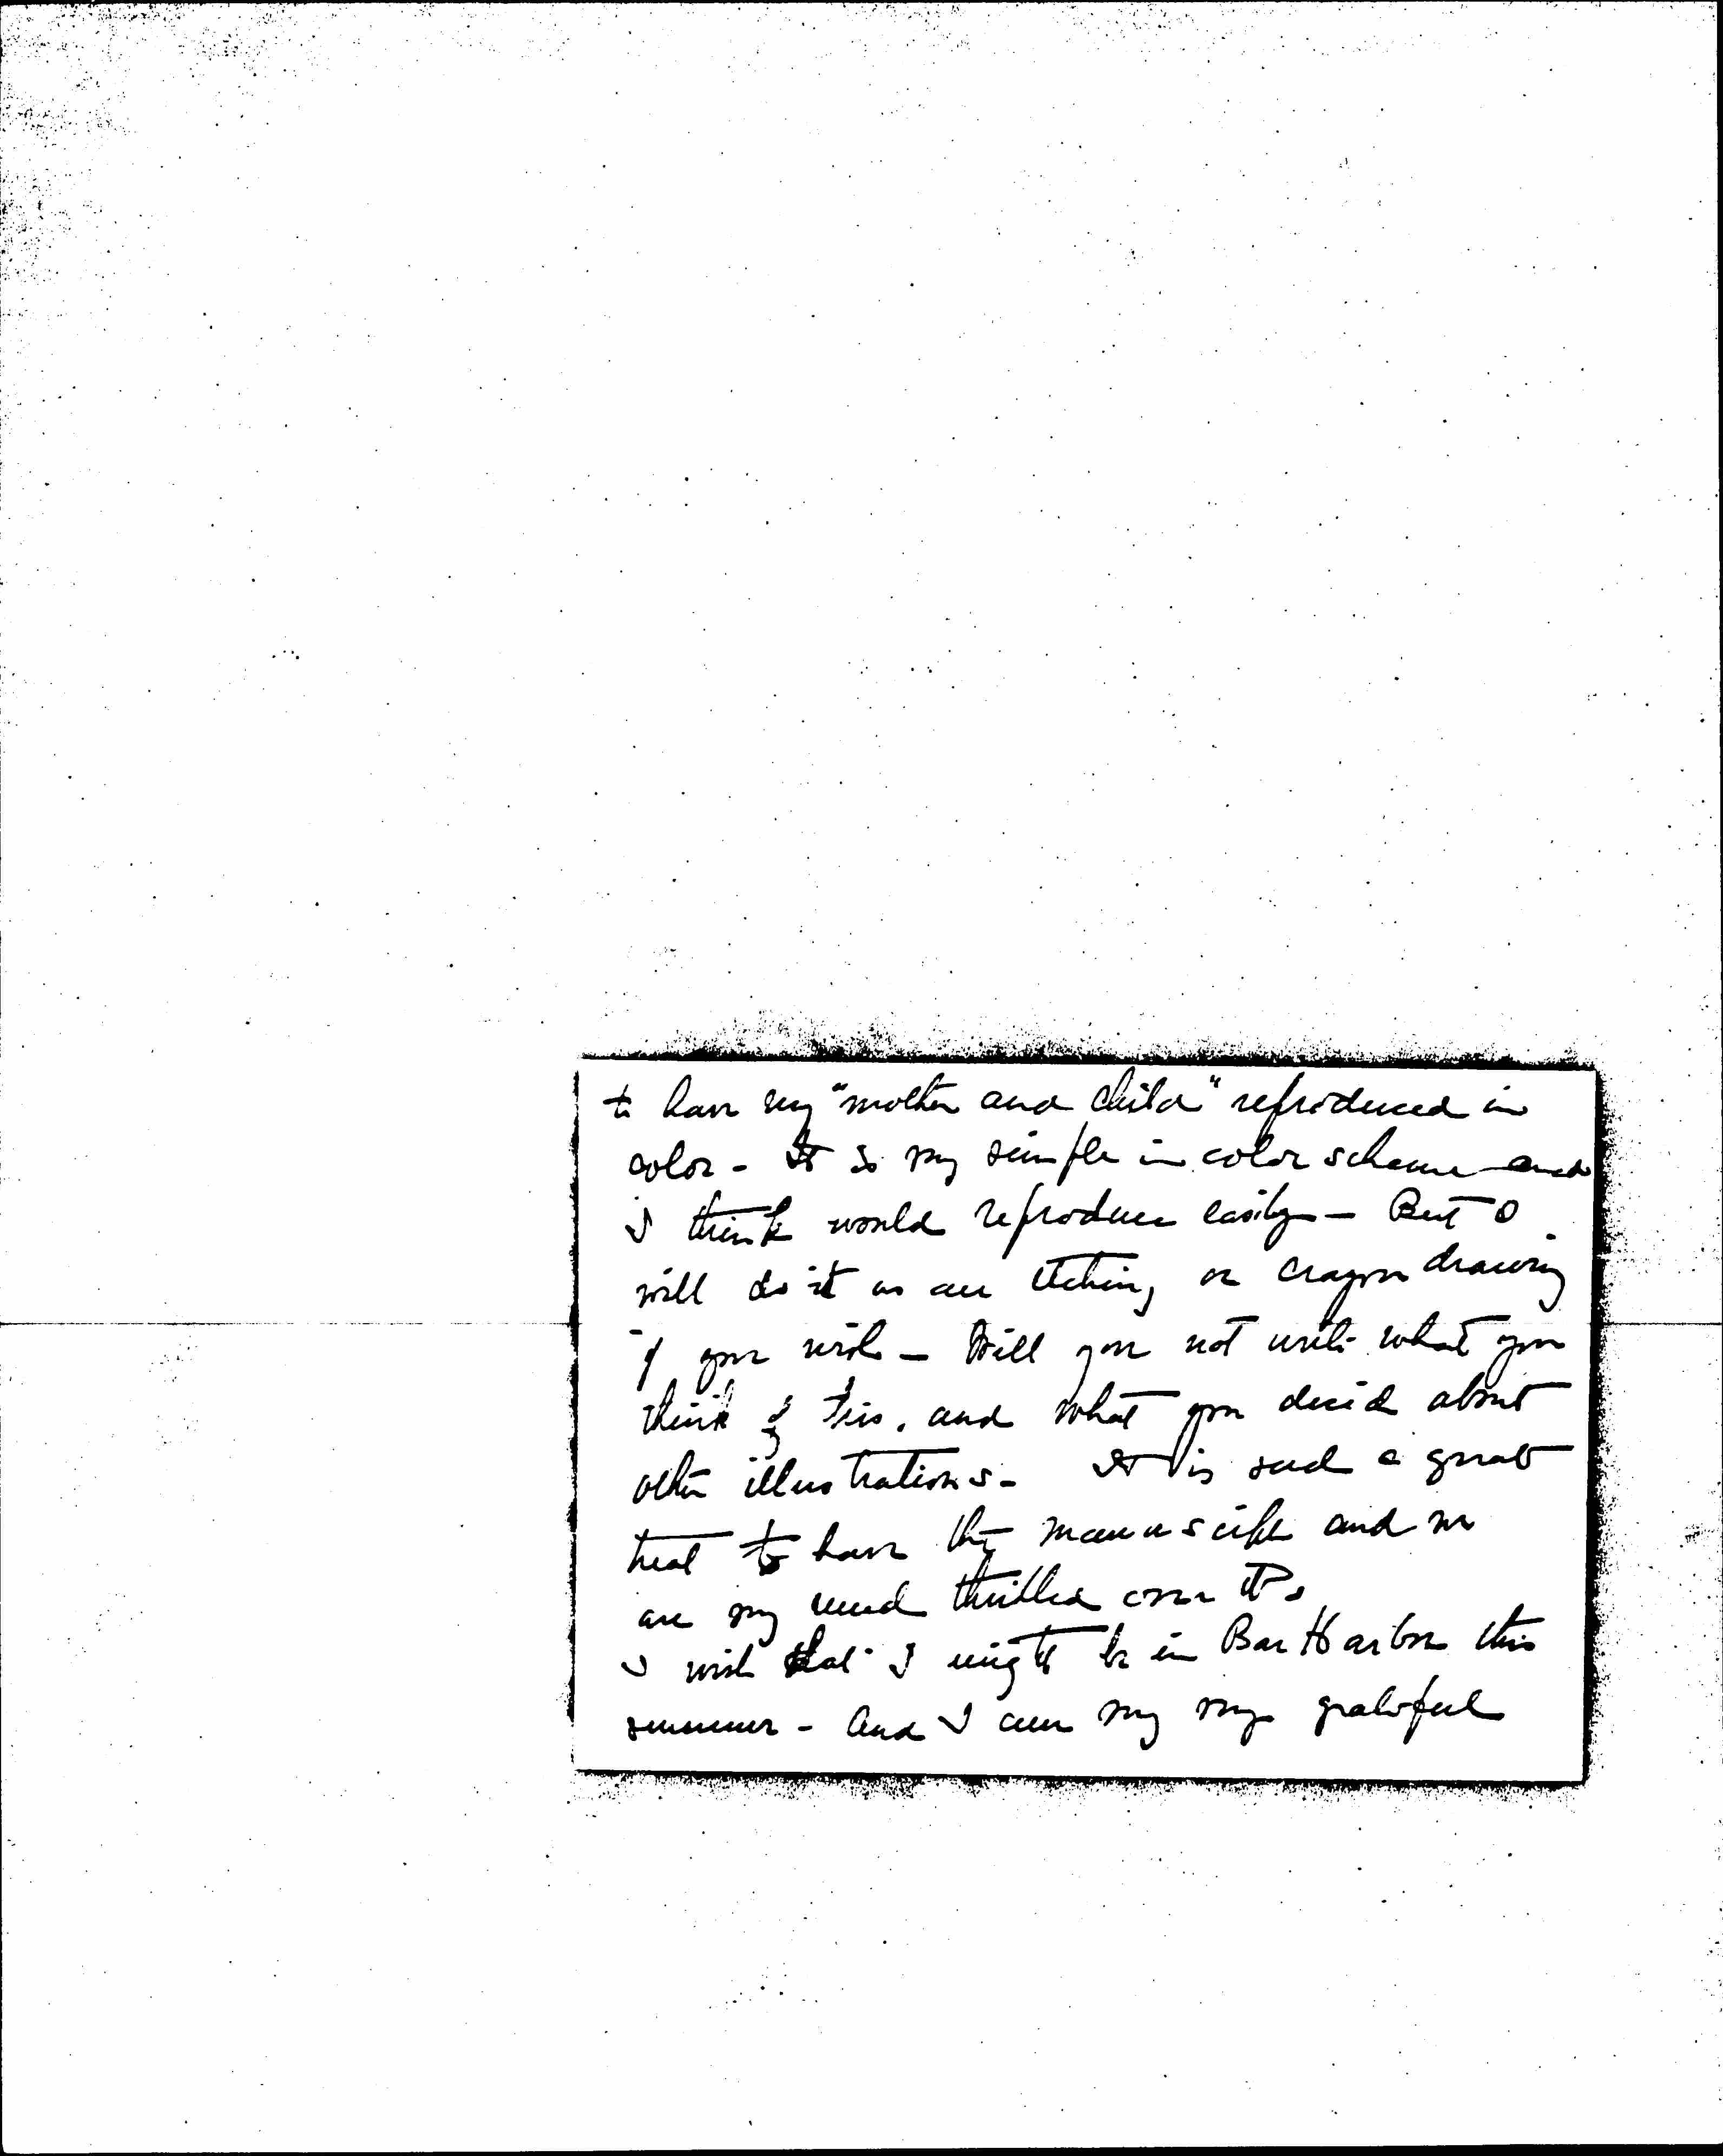 to have my "mother and child" reproduced in
color - It is very simple in color scheme and
I think would reproduce easily - But I
will do it as an etching or crayon drawing
if you wish - Will you not write what you
think of this, and what you decide about
other illustrations - It is such a great
treat to have the manuscript and we
are very much thrilled over it.
I wish that I might be in Bar Harbor this
summer - And I am very very grateful